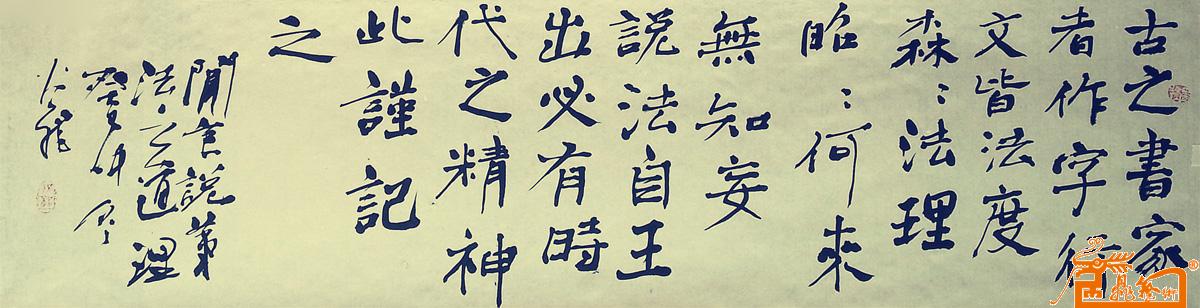 古之書家
者作字行
文皆法度
森〻法理
昭〻何來
無知妄
説法自王
出必有時
代之精神
此謹記
之
言説第
法〻之道理
仲